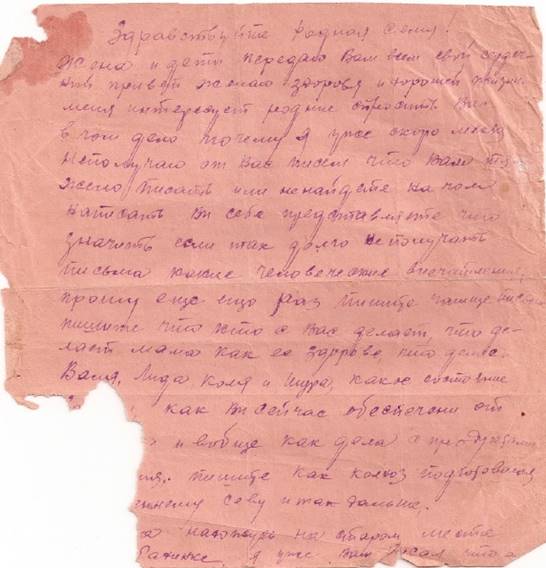 Здравствуйте родная семя!
Жена и дети передаю Вам всем свой сердеч-
привет желаю здоровя и хорошей жизни
меня интересует родние спросить Вас
в чом дело почему я уже скоро месяц
неполучаю от Вас писем что Вам тя-
жело писать или ненайдете на чом
написать Ви себе представляете что
значить если так долго неполучать
письма какие человеческие впечатления,
прошу еще ещо раз пишите чаще
пишите что хто с Вас делает, что де-
лает мама как ее здоровє, што делає
Валя, Лида коля и Шура, какое состояние
как Ви сейчас обеспечени от
и вобще как дела с продуктами
пишите как колхоз подготовался
севу и так дальше.
нахожусь на старом месте
я уже Вам писал что